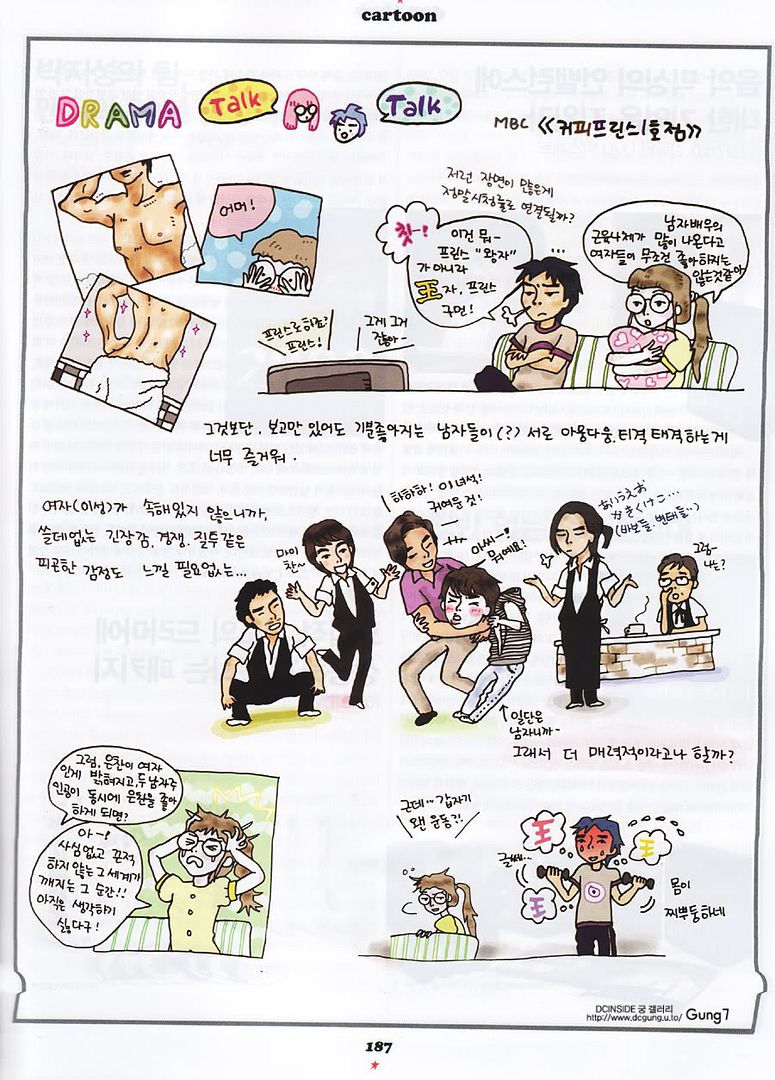 cartoon
DRAMA Talk Talk
MBC 《커피프린스 1호점》
어머!
저런 장면이 많은게
정말 시청률로 연결될까?
칫~!
이건 뭐-
프린스 "왕자"
가 아니라
王자, 프린스
구먼!
...
남자배우의
근육나체가 많이 나온다고
여자들이 무조건 좋아하지는
않는것같아
프린스라 하죠?
프린스!
그게 그거
잖아-
그것보단, 보고만 있어도 기분좋아지는 남자들이(?) 서로 아웅다웅, 티격태격하는게
너무 즐거워.
여자(이성)가 속해있지 않으니까,
쓸데없는 긴장감, 경쟁, 질투같은
피곤한 감정도 느낄 필요없는...
마이
찬~
하하하! 이녀석!
귀여운 것!
아씨~!
뭐예요!
あいうえお
かきくけこ...
(바보들, 변태들..)
그럼~
나는?
일단은
남자니까~
그래서 더 매력적이라고나 할까?
그럼, 은찬이 여자
인게 밝혀지고, 두 남자주
인공이 동시에 은찬을 좋아
하게 되면?
아~!
사심없고 끈적
하지 않는 그 세계가
깨지는 그 순간!!
아직은 생각하기
싫다구!
근데~ 갑자기
왠 운동?!
글쎄...
王
王
王
몸이
찌뿌둥하네
DCINSIDE 궁 갤러리
http://www.dcgung.u.to/ Gung7
187